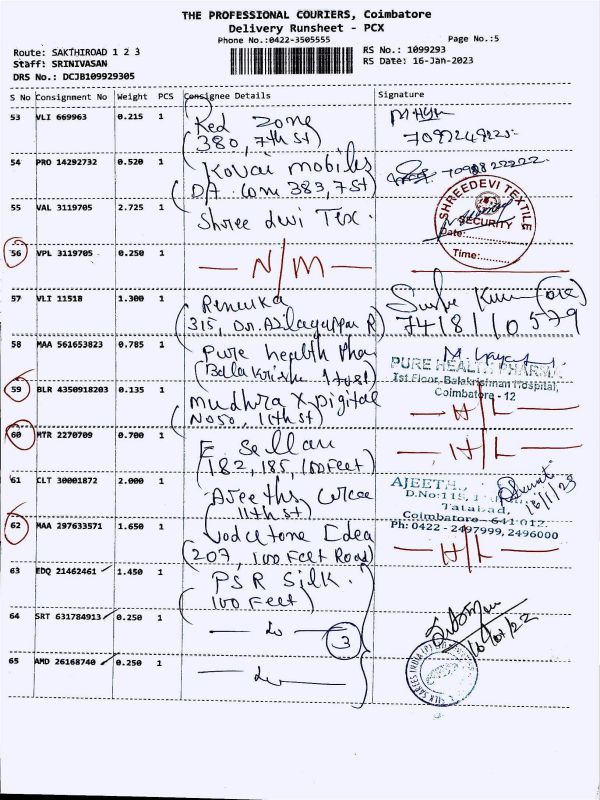 THE PROFESSIONAL COURIERS, Coimbatore
Delivery Runsheet - PCX
Phone No.:0422-3505555
Page No.:5
Route: SAKTHIROAD 1 2 3
Staff: SRINIVASAN
DRS No.: DCJB109929305
RS No.: 1099293
RS Date: 16-Jan-2023
S No Consignment No Weight PCS Consignee Details Signature
53 VLI 669963 0.215 1 Red Zone
(380, 7th st)
7092249225
54 PRO 14292732 0.520 1 Kovai mobiles
383, 7 St)
55 VAL 3119705 2.725 1 Shree devi Tex.
SHREEDEVI TEXTILE
SECURITY
Date:
Time:
56 VPL 3119705 0.250 1 N/M
57 VLI 11518 1.300 1 Renuka
315, Dr. Azhagappa R)
7418110579
58 MAA 561653823 0.785 1 Pure health Phar
PURE HEALTH PHARMA
1st Floor, Balakrishnan Hospital,
Coimbatore - 12
59 BLR 4350918203 0.135 1 mudhra x Digital
No 50, 11th st)
H/L
60 MTR 2270709 0.700 1 E. Sellan
(182, 185, 100 Feet)
H/L
61 CLT 30001872 2.000 1 Ajeeths
11th st)
AJEETH
D.No:115,
Tatabad,
Coimbatore - 641 012.
Ph: 0422 - 2497999, 2496000
16/1/23
62 MAA 297633571 1.650 1 Vodafone Idea
(207, 100 Feet Road)
H/L
63 EDQ 21462461 1.450 1 PSR Silk.
100 Feet)
64 SRT 631784913 0.250 1
3
65 AMD 26168740 0.250 1